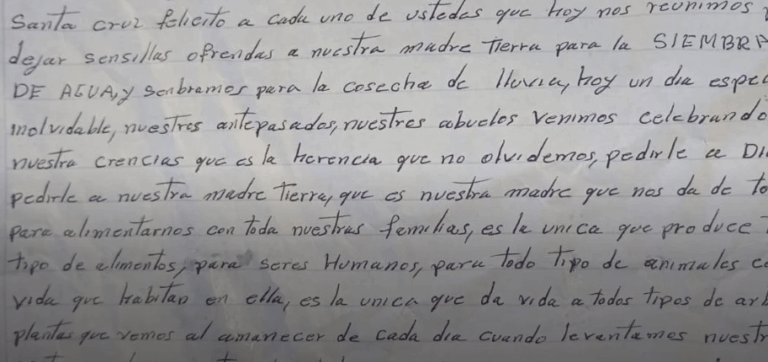 Santa cruz felicito a cada uno de ustedes que Hoy nos reunimos
dejar sensillas ofrendas a nuestra madre Tierra para la SIEMBRA
DE AGUA, y sembramos para la cosecha de lluvia, hoy un dia espec
inolvidable, nuestros antepasados, nuestros abuelos venimos celebrando
nuestra crencias que es la herencia que no olvidemos, pedirle a DI
pedirle a nuestra madre Tierra, que es nuestra madre que nos da de to
para alimentarnos con toda nuestras familias, es la unica que produce
tipo de alimentos, para seres Humanos, para todo tipo de animales c
vida que habitan en ella, es la unica que da vida a todos tipos de arb
plantas que vemos al amanecer de cada dia cuando levantamos nuestr